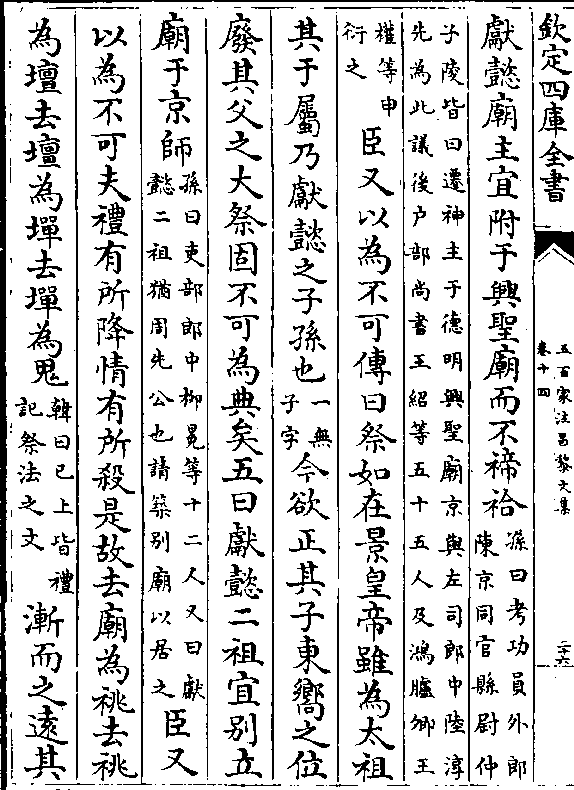 欽定四庫全書
五百家注昌黎文集
卷十四
二十六
獻懿廟主宜附于興聖廟而不禘祫
孫曰考功員外郎
陳京同官縣尉仲
子陵皆曰遷神主于德明興聖廟京與左司郎中陸淳
先為此議後户部尚書王紹等五十五人及鴻臚卿王
權等申
衍之
臣又以為不可傳曰祭如在景皇帝雖為太祖
其于屬乃獻懿之子孫也
一無
子字
今欲正其子東嚮之位
廢其父之大祭固不可為典矣五曰獻懿二祖宜別立
廟于京師
孫曰吏部郎中柳冕等十二人又曰獻
懿二祖猶周先公也請築别廟以居之
臣又
以為不可夫禮有所降情有所殺是故去廟為祧去祧
為壇去壇為墠去墠為鬼
韓曰已上皆禮
記祭法之文
漸而之遠其